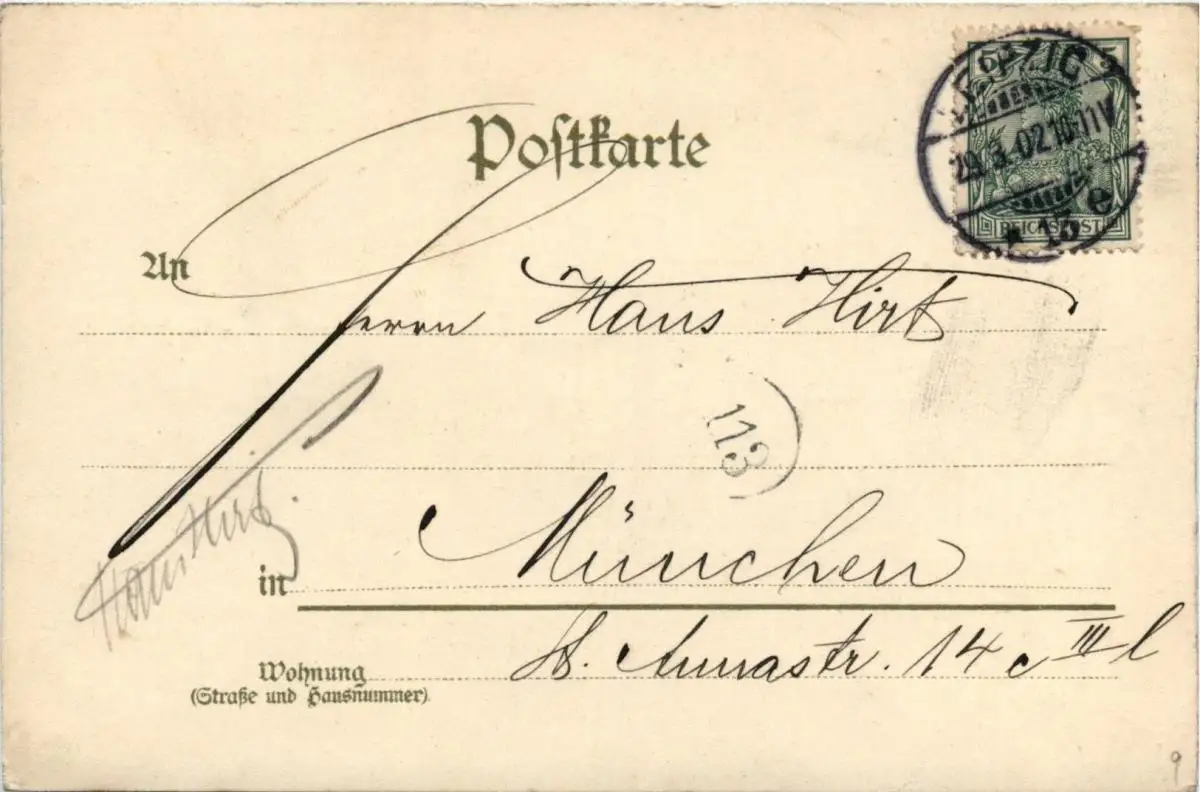 Postkarte
5 5
LEIPZIG
29.3.02.10-11V
* 13 e
REICHSPOST
An
Herrn Hans Hirt
113
München
in
St. Annastr. 14 c III l
Wohnung
(Straße und Hausnummer)
Hans Hirt.
9